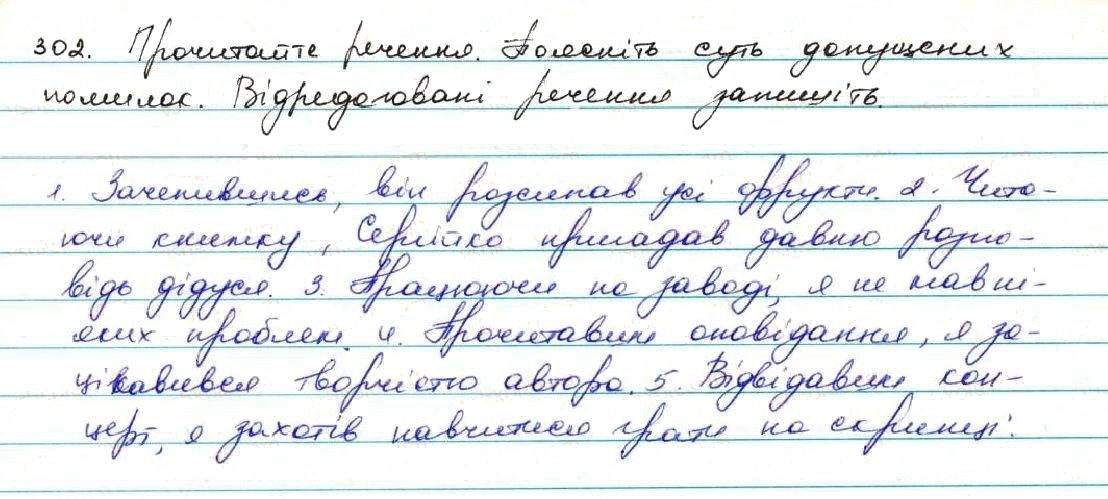 302. Прочитайте речення. Поясніть суть допущених
помилок. Відредаговані речення запишіть.
1. Зачепившись, він розсипав усі фрукти. 2. Чита-
ючи книжку, Сергійко пригадав давню розпо-
відь дідуся. 3. Працюючи на заводі, я не мав ні-
яких проблем. 4. Прочитавши оповідання, я за-
цікавився творчістю автора. 5. Відвідавши кон-
церт, я захотів навчитися грати на скрипці.